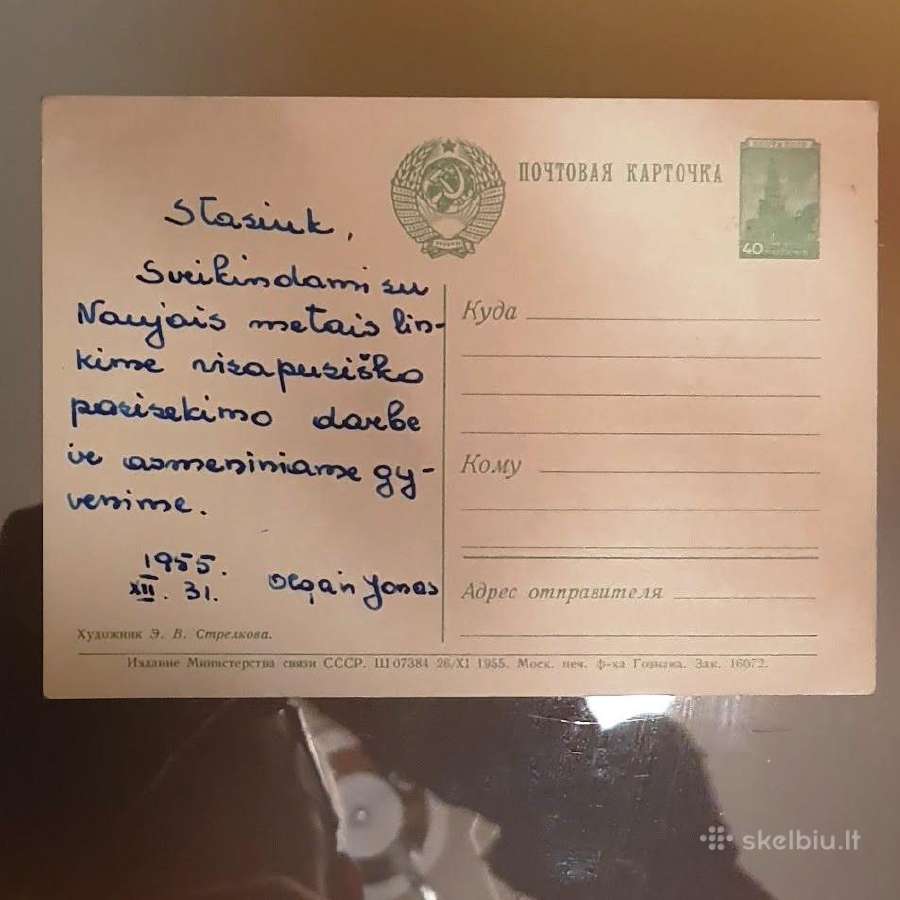 ПОЧТОВАЯ КАРТОЧКА
40
Stasiuk,
Sveikindami su
Naujais metais lin-
kime visapusiško
pasisekimo darbe
ir asmeniniame gy-
venime.
1955.
XII. 31.
Olga ir Jonas
Куда
Кому
Адрес отправителя
Художник Э. В. Стрелкова.
Издание Министерства связи СССР. Ш 07384 26/XI 1955. Моск. печ. ф-ка Гознака. Зак. 16072.
skelbiu.lt